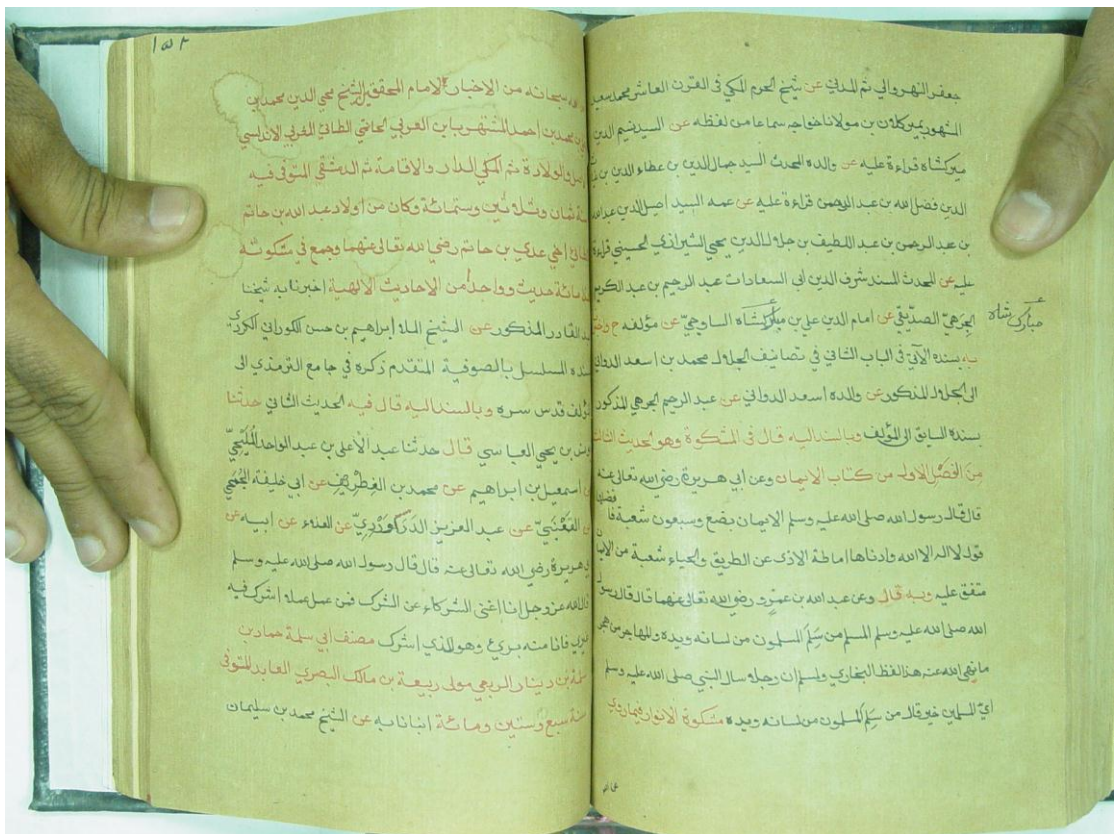 جعفر النهروالي ثم المدني عن شيخ الحرم المكي في القرن العاشر محمد سعيد
المشهور بميركلان بن مولانا خواجه سماعا من لفظه عن السيد نسيم الدين
ميركشاه قراءة عليه عن والده المحدث السيد جمال الدين بن عطاء الدين بن
الدين فضل الله بن عبد الرحمن قراءة عليه عن عمه السيد اصيل الدين عبد الله
بن عبد الرحمن بن عبد اللطيف بن جلال الدين يحيى الشيرازي الحسيني قراءة
عليه عن المحدث المسند شرف الدين أبي السعادات عبد الرحيم بن عبد الكريم
الجرهي الصديقي عن امام الدين علي بن مباركشاه الساوجي عن مؤلفه ح
مباركشاه
به بسنده الآتي في الباب الثاني في تصانيف الجلال محمد بن اسعد الدواني
الى الجلال المذكور عن والده اسعد الدواني عن عبد الرحيم الجرهي المذكور
بسنده السابق الى المؤلف وبالسند اليه قال في المشكوة وهو الحديث الثالث
من الفصل الاول من كتاب الايمان وعن ابي هريرة رضي الله تعالى عنه
قال قال رسول الله صلى الله عليه وسلم الايمان بضع وسبعون شعبة فافضلها
قول لا اله الا الله وادناها اماطة الاذى عن الطريق والحياء شعبة من الايمان
متفق عليه وبه قال وعن عبد الله بن عمرو رضي الله تعالى عنهما قال قال رسول
الله صلى الله عليه وسلم المسلم من سلم المسلمون من لسانه ويده والمهاجر من هجر
ما نهى الله عنه هذا لفظ البخاري ولمسلم ان رجلا سال النبي صلى الله عليه وسلم
اي المسلمين خير قال من سلم المسلمون من لسانه ويده مشكوة الانوار فيما روي
عن الله
١٥٢
الله سبحانه من الاخبار للامام المحقق الشيخ محيي الدين محمد بن
بن محمد بن احمد المشتهر بابن العربي الحاتمي الطائي المغربي الاندلسي
والولادة ثم المكي الدار والاقامة ثم الدمشقي المتوفى فيه
سنة ثمان وثلاثين وستمائة وكان من اولاد عبد الله بن حاتم
اخي عدي بن حاتم رضي الله تعالى عنهما وجمع في مشكوته
مائة حديث وواحدا من الاحاديث الالهية اخبرنا به شيخنا
عبد القادر المذكور عن الشيخ الملا ابراهيم بن حسن الكوراني الكردي
بسنده المسلسل بالصوفية المتقدم ذكره في جامع الترمذي الى
المؤلف قدس سره وبالسند اليه قال فيه الحديث الثاني حدثنا
يونس بن يحيى العباسي قال حدثنا عبد الاعلى بن عبد الواحد المليحي
اسمعيل بن ابراهيم عن محمد بن الغطريف عن ابي خليفة الجمحي
عن القعنبي عن عبد العزيز الدراوردي عن العلاء عن ابيه عن
ابي هريرة رضي الله تعالى عنه قال قال رسول الله صلى الله عليه وسلم
قال الله عز وجل انا اغنى الشركاء عن الشرك فمن عمل عملا اشرك فيه
غيري فانا منه بريء وهو للذي اشرك مصنف ابي سلمة حماد بن
سلمة بن دينار الربعي مولى ربيعة بن مالك البصري العابد المتوفى
سنة سبع وستين ومائة انبانا به عن الشيخ محمد بن سليمان